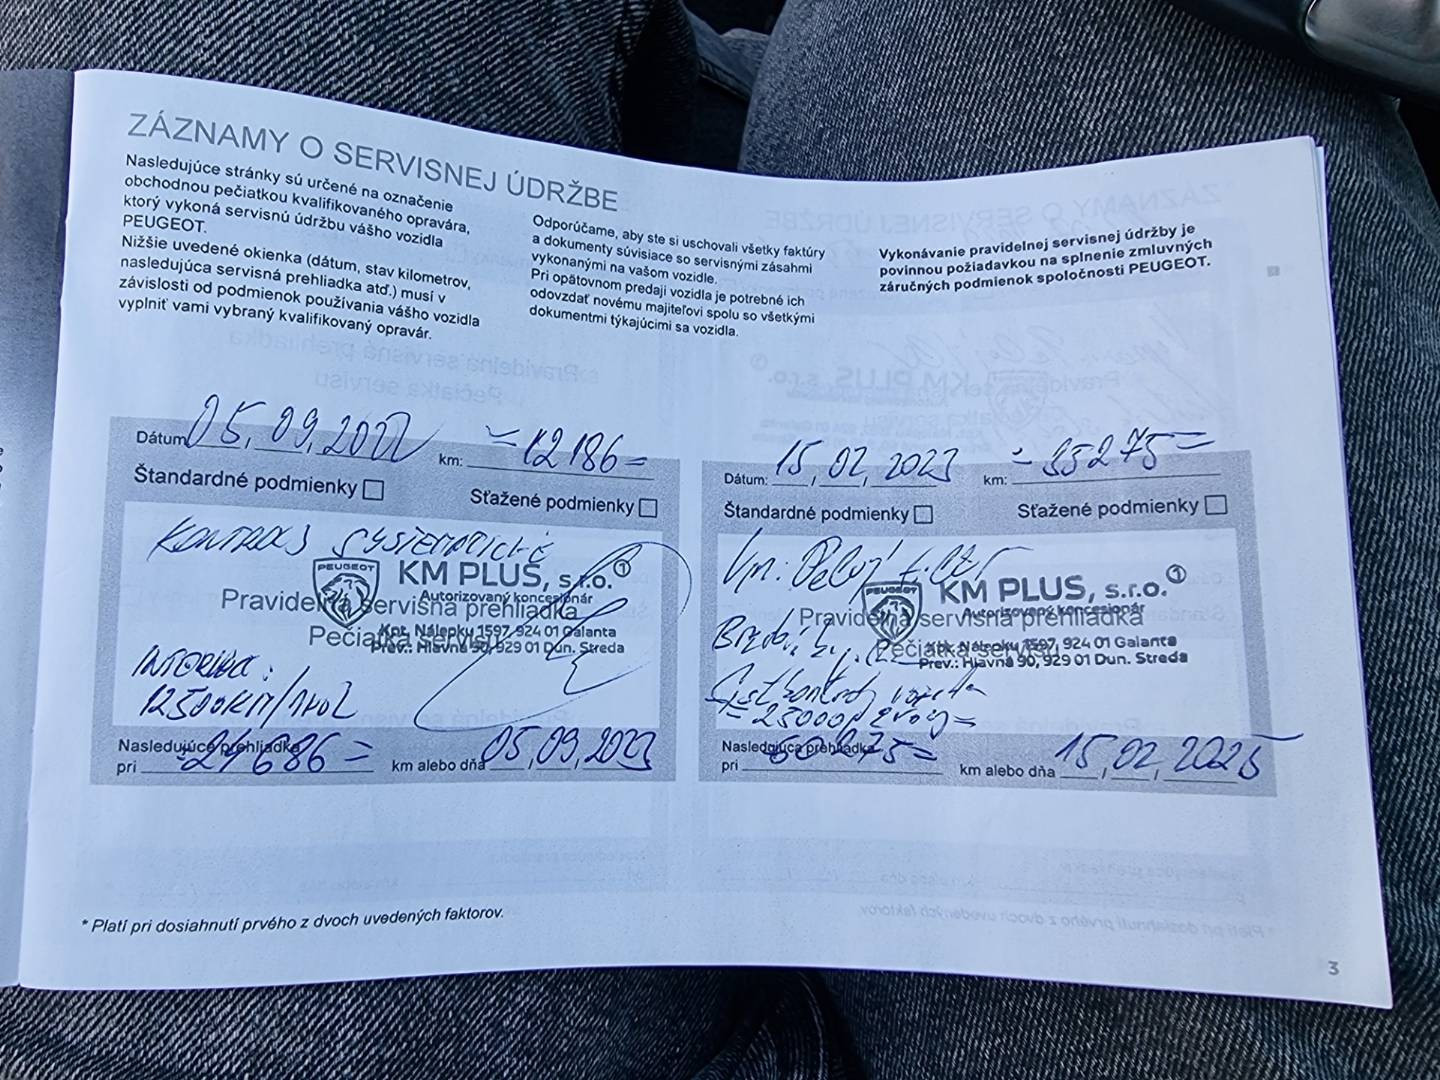 ZÁZNAMY O SERVISNEJ ÚDRŽBE
Nasledujúce stránky sú určené na označenie
obchodnou pečiatkou kvalifikovaného opravára,
ktorý vykoná servisnú údržbu vášho vozidla
PEUGEOT.
Nižšie uvedené okienka (dátum, stav kilometrov,
nasledujúca servisná prehliadka atď.) musí v
závislosti od podmienok používania vášho vozidla
vyplniť vami vybraný kvalifikovaný opravár.
Odporúčame, aby ste si uschovali všetky faktúry
a dokumenty súvisiace so servisnými zásahmi
vykonanými na vašom vozidle.
Pri opätovnom predaji vozidla je potrebné ich
odovzdať novému majiteľovi spolu so všetkými
dokumentmi týkajúcimi sa vozidla.
Vykonávanie pravidelnej servisnej údržby je
povinnou požiadavkou na splnenie zmluvných
záručných podmienok spoločnosti PEUGEOT.
Dátum 05, 09, 2022 km: =12186=
Štandardné podmienky Sťažené podmienky
PEUGEOT KM PLUS, s.r.o. 1
Autorizovaný koncesionár
Pravidelná servisná prehliadka
Pečiatka servisu
Kpt. Nálepku 1597, 924 01 Galanta
Prev.: Hlavná 90, 929 01 Dun. Streda
12500KM/1ROK
Nasledujúca prehliadka
pri =24686= km alebo dňa 05, 09, 2023
Dátum: 15, 02, 2023 km: =35275=
Štandardné podmienky Sťažené podmienky
PEUGEOT KM PLUS, s.r.o. 1
Autorizovaný koncesionár
Pravidelná servisná prehliadka
Pečiatka servisu
Kpt. Nálepku 1597, 924 01 Galanta
Prev.: Hlavná 90, 929 01 Dun. Streda
Nasledujúca prehliadka
pri 60275= km alebo dňa 15, 02, 2025
* Platí pri dosiahnutí prvého z dvoch uvedených faktorov.
3